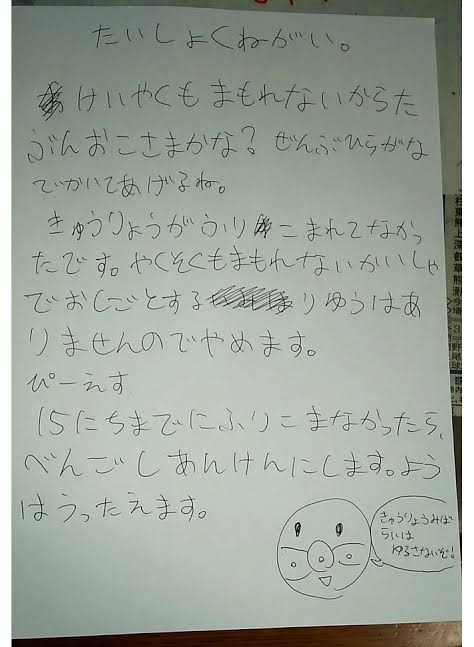 たいしょくねがい。
けいやくもまもれないからた
ぶんおこさまかな？ぜんぶひらがな
でかいてあげるね。
きゅうりょうがふりこまれてなかっ
たです。やくそくもまもれないかいしゃ
でおしごとするりゆうはあ
りませんのでやめます。
ぴーえす
15にちまでにふりこまなかったら、
べんごしあんけんにします。よう
はうったえます。
きゅうりょうみば
らいは
ゆるさないぞ!